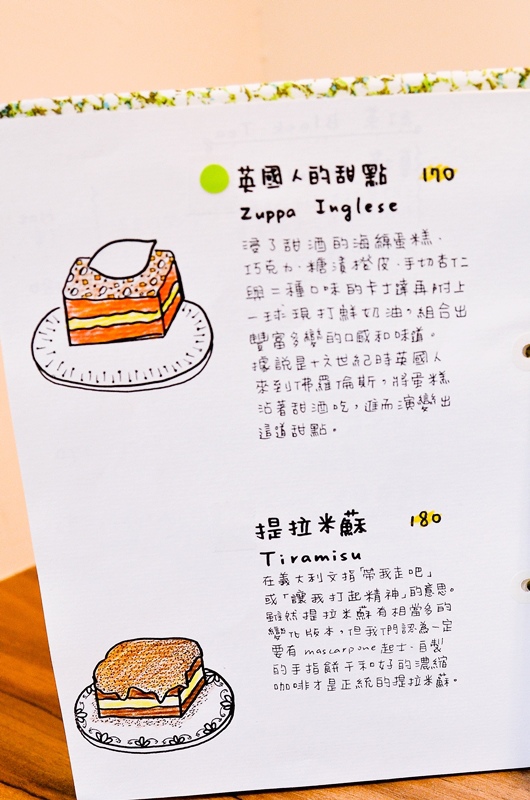 英國人的甜點 170
Zuppa Inglese
浸了甜酒的海綿蛋糕、
巧克力、糖漬橙皮、手切杏仁
與二種口味的卡士達再附上
一球現打鮮奶油，組合出
豐富多變的口感和味道。
據說是十六世紀時英國人
來到佛羅倫斯，將蛋糕
沾著甜酒吃，進而演變出
這道甜點。
提拉米蘇 180
Tiramisu
在義大利文指「帶我走吧」
或「讓我打起精神」的意思。
雖然提拉米蘇有相當多的
變化版本，但我們認為一定
要有mascarpone起士、自製
的手指餅干和好的濃縮
咖啡才是正統的提拉米蘇。